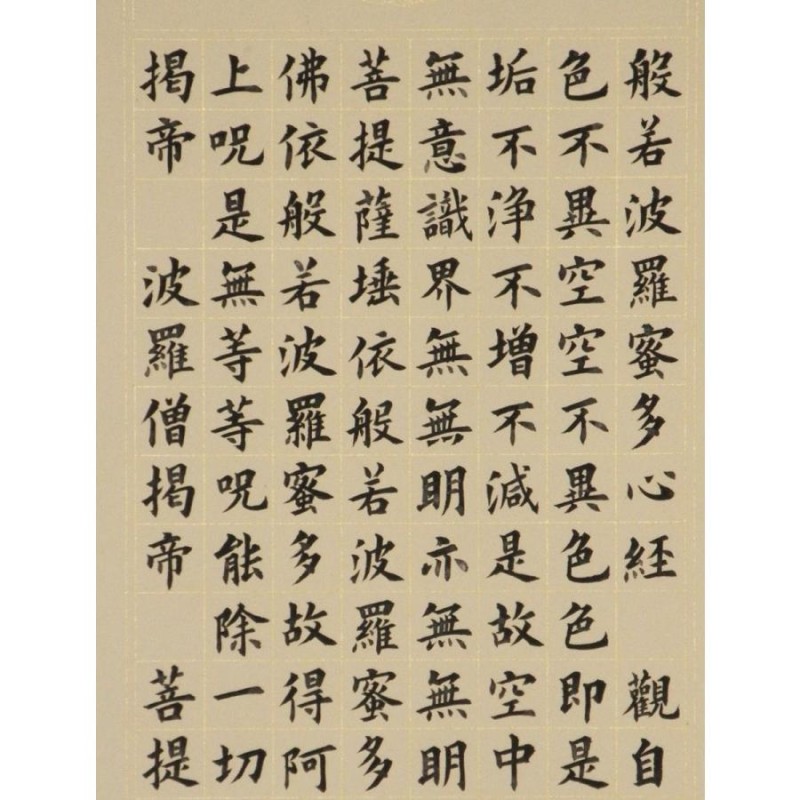 般若波羅蜜多心経 觀自
色不異空空不異色色即是
垢不浄不增不減是故空中
無意識界無無明亦無無明
菩提薩埵依般若波羅蜜多
佛依般若波羅蜜多故得阿
上呪是無等等呪能除一切
揭帝 波羅僧揭帝 菩提